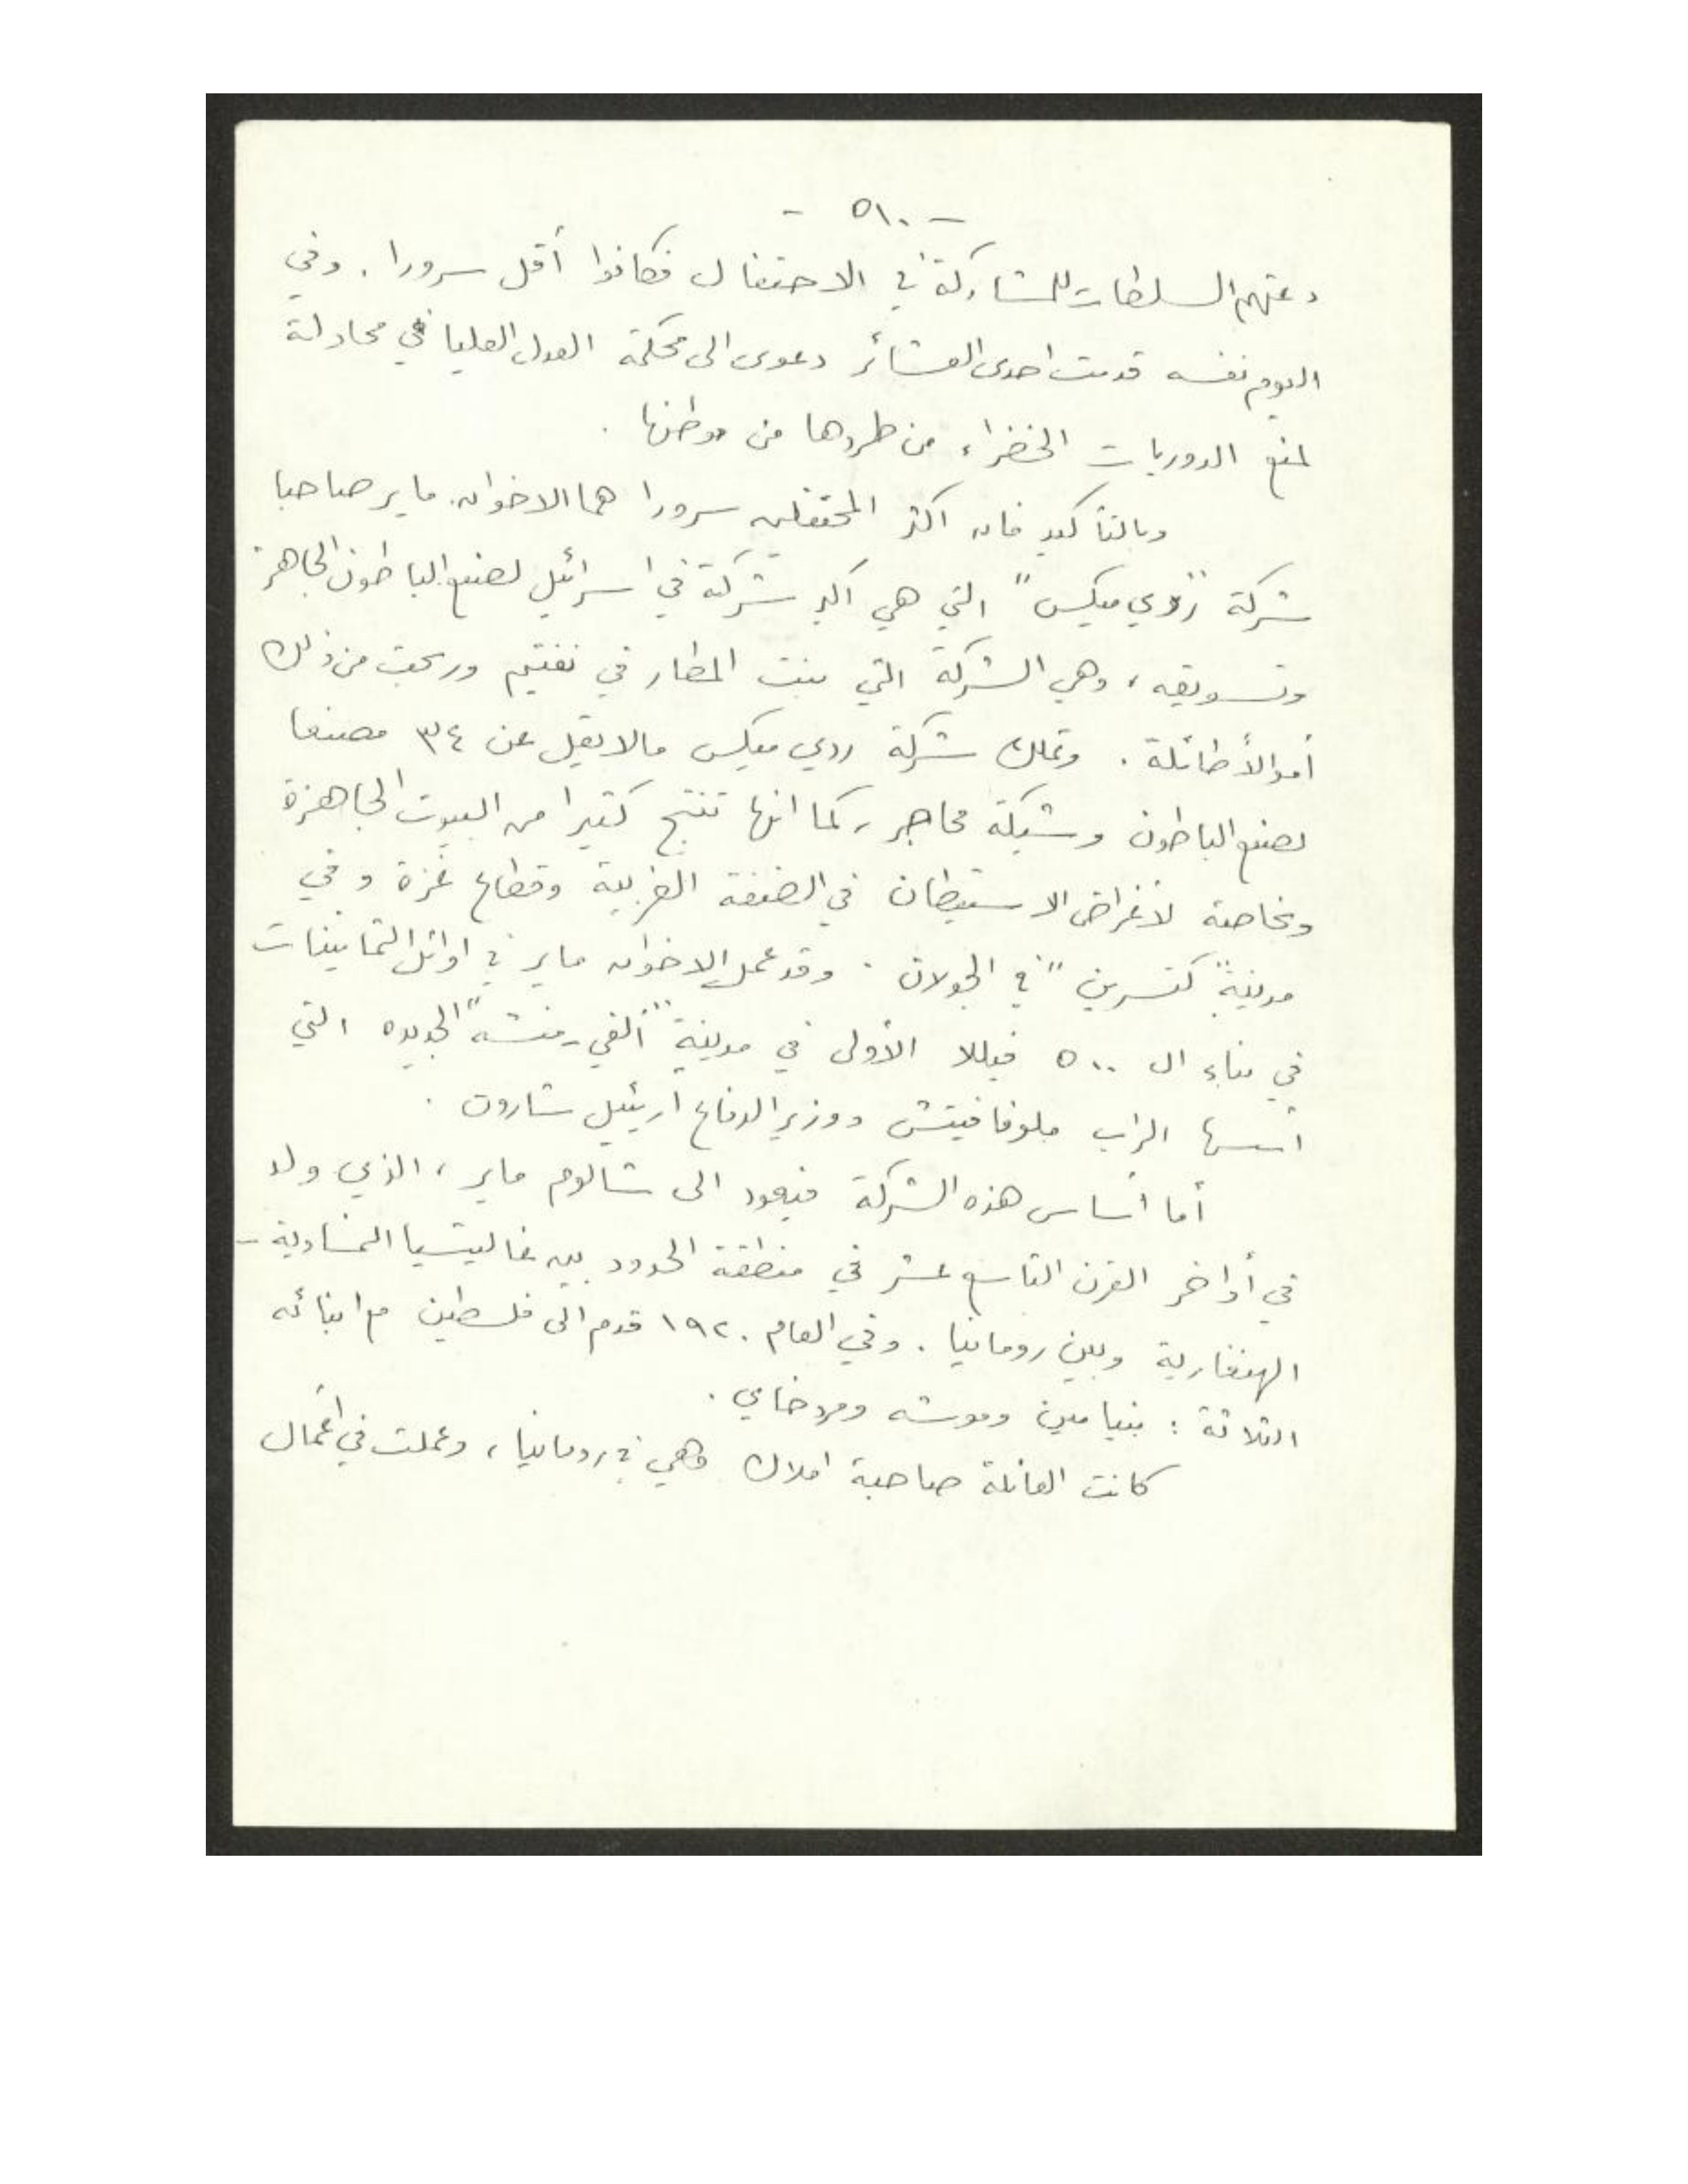 - ٥١٠ -
دعتهم السلطات للمشاركة في الاحتفال فكانوا أقل سرورا . وفي
اليوم نفسه قدمت احدى العشائر دعوى الى محكمة العدل العليا في محاولة
لمنع الدوريات الخضراء من طردها من موطنها .
وبالتأكيد فان اكثر المحتفلين سرورا هما الاخوان ماير صاحبا
شركة "ردي ميكس" التي هي اكبر شركة في اسرائيل لصنع الباطون الجاهز
وتسويقه ، وهي الشركة التي بنت المطار في نفتيم وربحت من ذلك
أموالاً طائلة . وتملك شركة ردي ميكس مالا يقل عن ٣٤ مصنعا
لصنع الباطون وشبكة محاجر ، كما انها تنتج كثيرا من البيوت الجاهزة
وبخاصة لأغراض الاستيطان في الضفة الغربية وقطاع غزة وفي
مدينة "كتسرين" في الجولان . وقد عمل الاخوان ماير في اوائل الثمانينات
في بناء ال ٥٠٠ فيللا الأولى في مدينة "ألفي - منشه" الجديده التي
اسسها الراب ملوفافيتش ووزير الدفاع اريئيل شارون .
أما أساس هذه الشركة فيعود الى شالوم ماير ، الذي ولد
في أواخر القرن التاسع عشر في منطقة الحدود بين غاليتسيا النمساوية -
الهنغارية وبين رومانيا . وفي العام ١٩٢٠ قدم الى فلسطين مع ابنائه
الثلاثة : بنيامين وموشه ومردخاي .
كانت العائلة صاحبة املاك وهي في رومانيا ، وعملت في أعمال